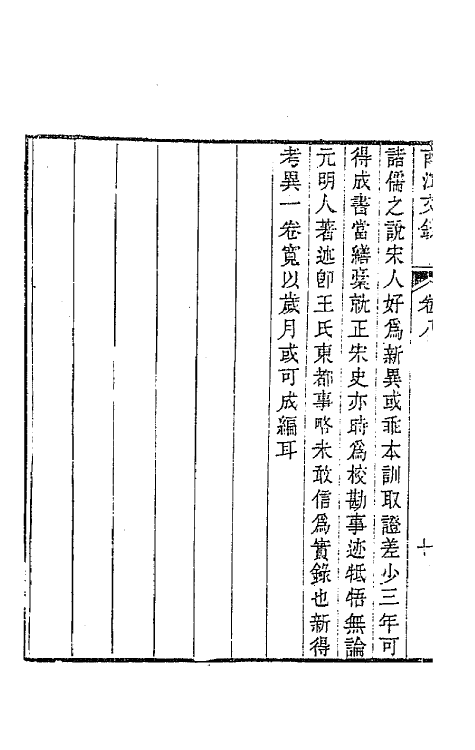 南江文鈔 卷八 十
諸儒之說宋人好爲新異或乖本訓取證差少三年可
得成書當繕槀就正宋史亦時爲校勘事迹牴牾無論
元明人著述卽王氏東都事略未敢信爲實錄也新得
考異一卷寬以歲月或可成編耳